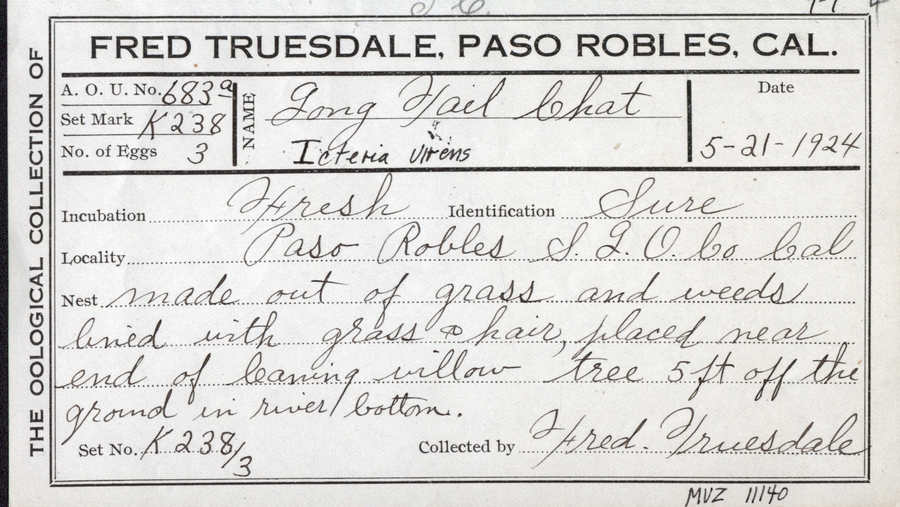 THE OOLOGICAL COLLECTION OF
FRED TRUESDALE, PASO ROBLES, CAL.
A. O. U. No. 683a
Set Mark K 238
No. of Eggs 3
NAME Long Tail Chat
Icteria virens
Date
5-21-1924
Incubation Fresh Identification Sure
Locality Paso Robles S. L. O. Co Cal
Nest made out of grass and weeds
lined with grass & hair, placed near
end of leaning willow tree 5 ft off the
ground in river bottom.
Set No. K 238/3 Collected by Fred. Truesdale
MVZ 11140